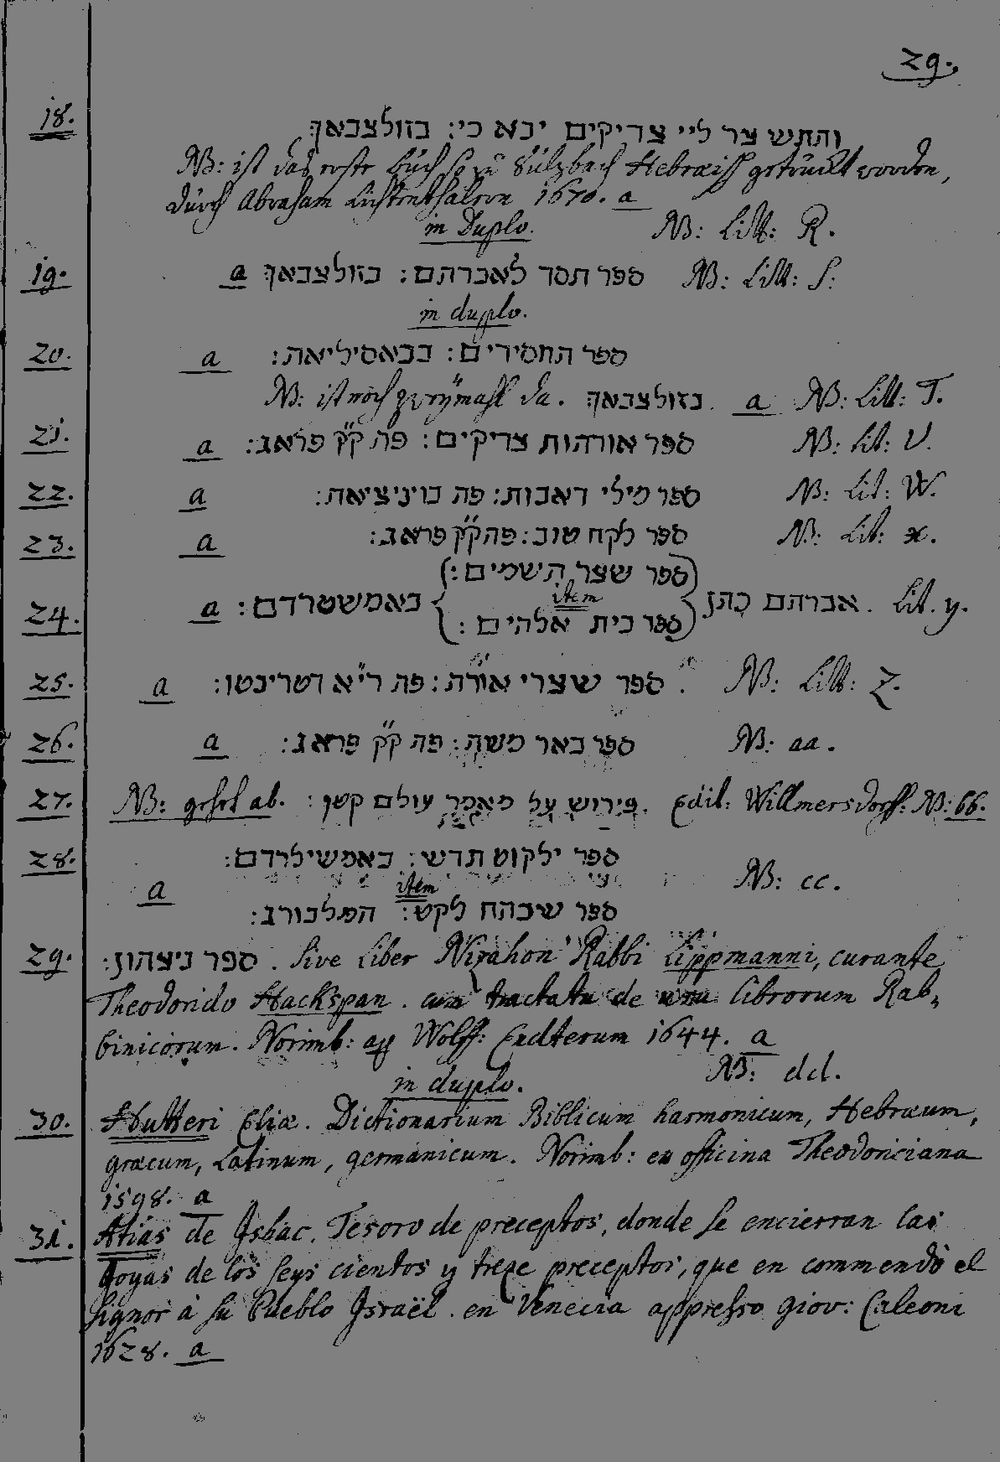 29.
18. והתש צר ליי צדיקים יבא כי: בזולצבאך
NB: ist das erste Buch so zu Sultzbach Hebraisch getruckt worden,
durch Abraham Lichtenthalern 1670. a
in Duplo. NB: Litt: R.
19. a ספר חסד לאברהם: בזולצבאך NB: Litt: S:
in duplo.
20. a ספר החסידים: בבאסיליאה:
NB: ist noch zweymahl da. בזולצבאך. a NB: Litt: T.
21. a ספר אורהות צדיקים: פה ק״ק פראג: NB: Lit: V.
22. a ספר מילי דאבות: פה בויניציאה: NB: Lit: W.
23. a ספר לקח טוב: פה ק״ק פראג: NB: Lit: x.
ספר שער השמים:
24. a אברהם כהן item באמשטרדם: Lit. y.
ספר בית אלהים:
25. a ספר שערי אורה: פה ר״א דטרינטו: NB: Litt: Z.
26. a ספר באר משה: פה ק״ק פראג: NB: aa.
27. NB: gehet ab. פירוש על מאמר עולם קטן: Edit: Willmersdorff: NB: bb.
28. ספר ילקוט חדש: באמשילרדם:
a item NB: cc.
ספר שיכהח לקט: המלבורג:
29. ספר ניצהון: sive Liber Nizahon Rabbi Lippmanni, curante
Theodorido Hackspan. cum tractatu de usu librorum Rab-
binicorum. Norimb: ap Wolff: Endterum 1644. a
in duplo. NB: dd.
30. Hutteri Eliæ. Dictionarium Biblicum harmonicum, Hebræum,
græcum, Latinum, germanicum. Norimb: ex officina Theodoriciana
1598. a
31. Atias de Isbac. Tesoro de preceptos, donde se encierran las
Joyas de los seys cientos y treze preceptos, que en commendò el
Signor à su Pueblo Israël. en Venecia appresso giov: Caleoni
1628. a